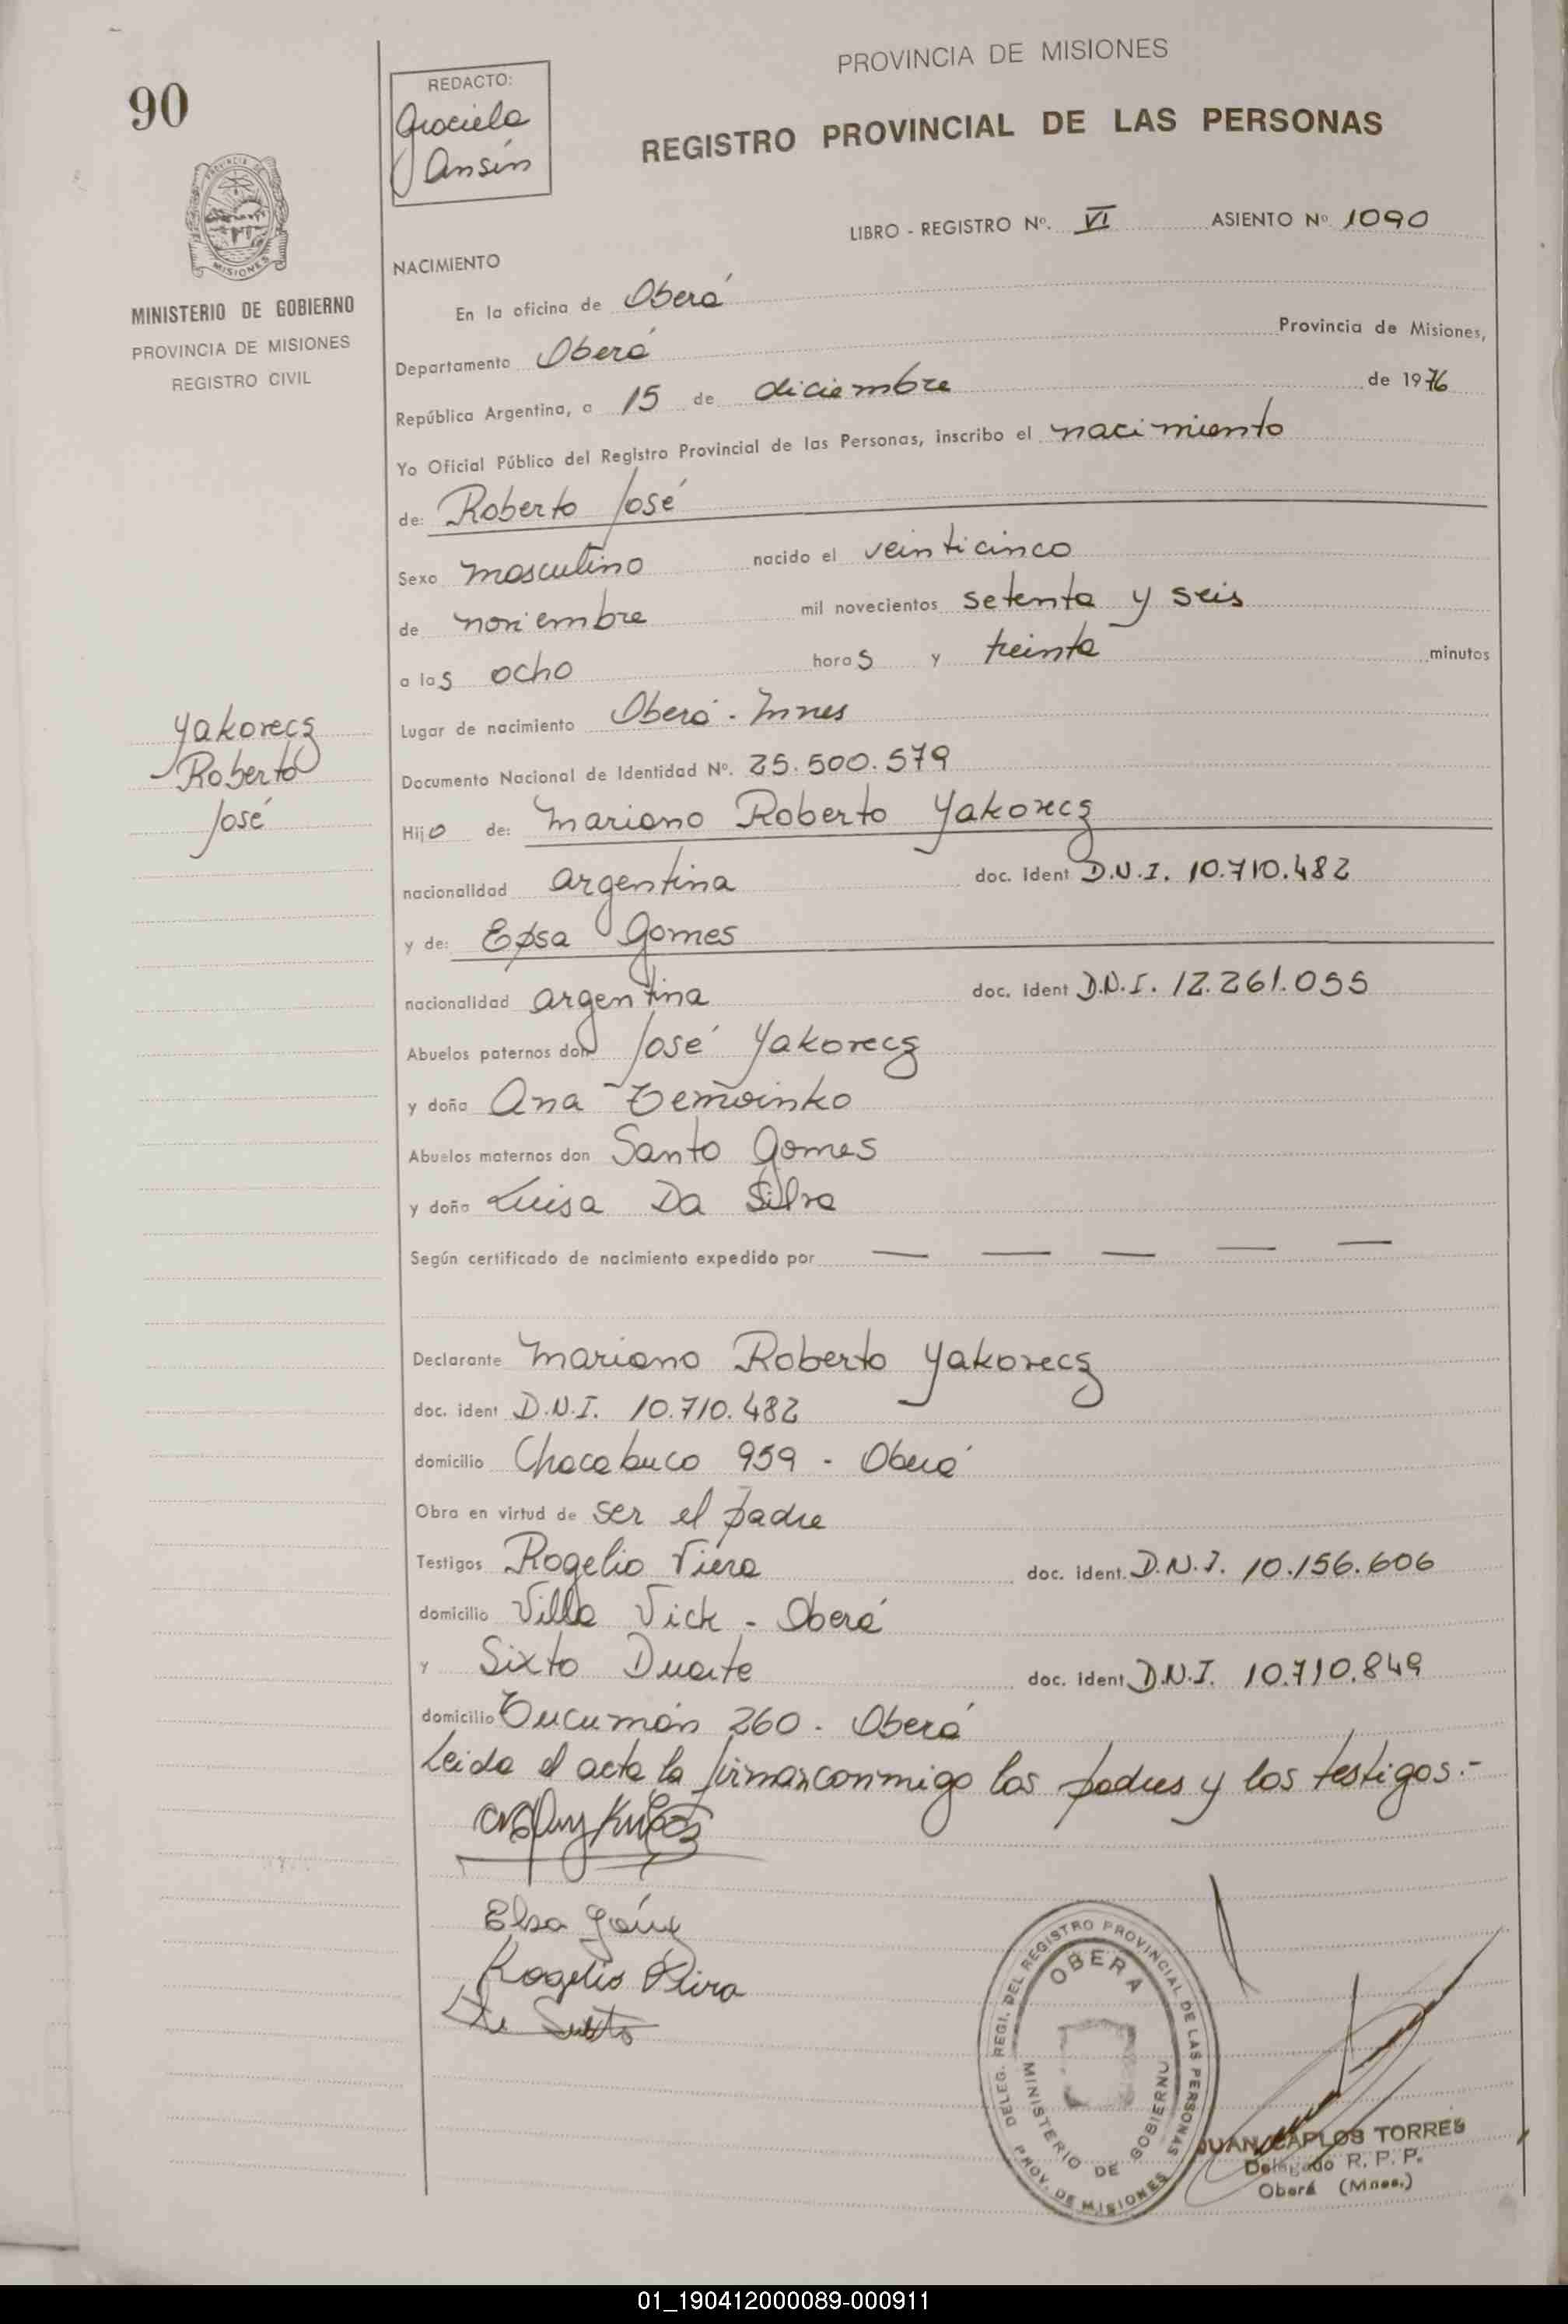 90
PROVINCIA DE MISIONES
MINISTERIO DE GOBIERNO
PROVINCIA DE MISIONES
REGISTRO CIVIL
Yakovecz
Roberto
José
REDACTO:
Graciela
Ansín
PROVINCIA DE MISIONES
REGISTRO PROVINCIAL DE LAS PERSONAS
LIBRO - REGISTRO Nº. VI ASIENTO Nº 1090
NACIMIENTO
En la oficina de Oberá
Departamento Oberá Provincia de Misiones,
República Argentina, a 15 de diciembre de 1976
Yo Oficial Público del Registro Provincial de las Personas, inscribo el nacimiento
de: Roberto José
Sexo masculino nacido el veinticinco
de noviembre mil novecientos setenta y seis
a las ocho horas y treinta minutos
Lugar de nacimiento Oberá - Mnes
Documento Nacional de Identidad Nº. 25.500.579
Hijo de: Mariano Roberto Yakovecz
nacionalidad argentina doc. ident D.N.I. 10.710.482
y de: Gomes
nacionalidad argentina doc. ident D.N.I. 12.261.055
Abuelos paternos don José Yakovecz
y doña Ana
Abuelos maternos don Santo Gomes
y doña Luisa Da Silva
Según certificado de nacimiento expedido por — — — — —
Declarante Mariano Roberto Yakovecz
doc. ident D.N.I. 10.710.482
domicilio Chacabuco 959 - Oberá
Obra en virtud de ser el padre
Testigos Rogelio Viera doc. ident. D.N.I. 10.156.606
domicilio Villa Vick - Oberá
y Sixto Duarte doc. ident D.N.I. 10.710.849
domicilio Tucumán 260 - Oberá
Leida el acta la firman conmigo los padres y los testigos.-
Elsa
Rogelio
Sixto
DELEG. REGI. DEL REGISTRO PROVINCIAL DE LAS PERSONAS
OBERA
MINISTERIO DE GOBIERNO
PROV. DE MISIONES
JUAN CARLOS TORRES
Delegado R. P. P.
Oberá (Mnes.)
01_190412000089-000911